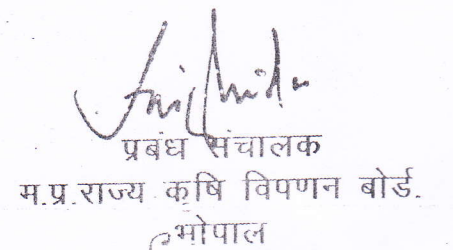 प्रबंध संचालक
म.प्र.राज्य कृषि विपणन बोर्ड.
भोपाल